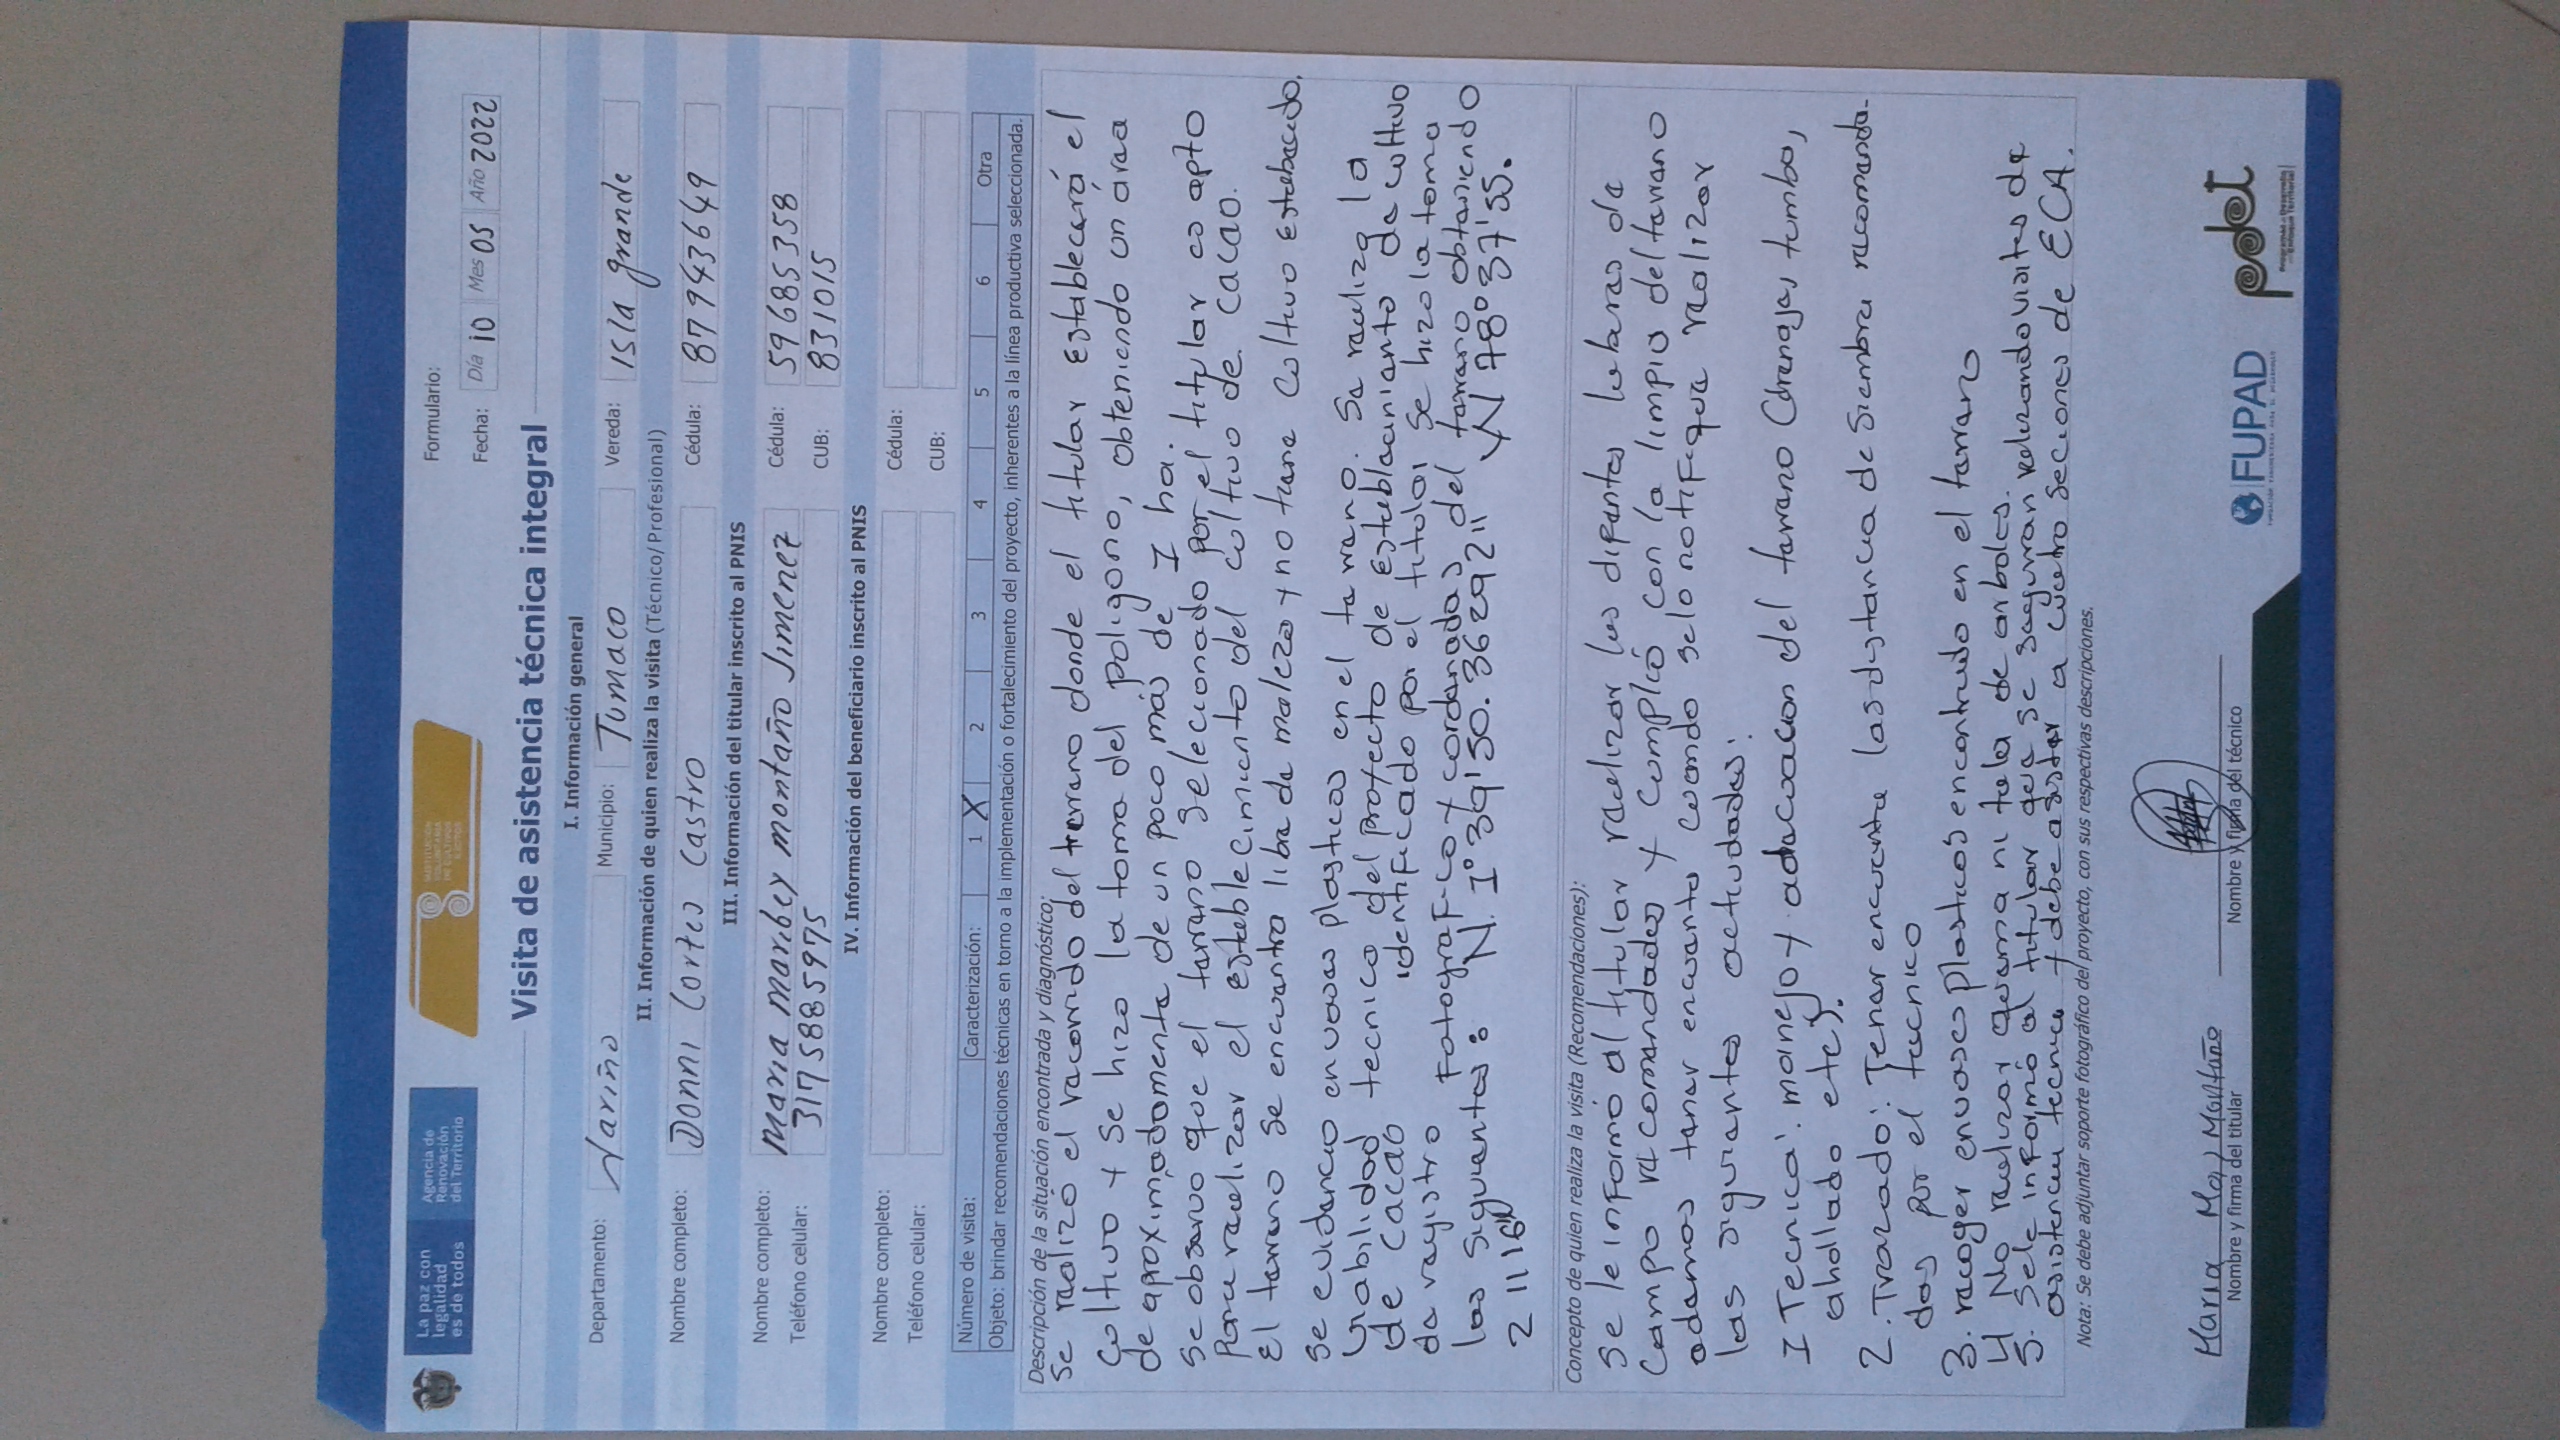 La paz con
legalidad
es de todos
Agencia de
Renovación
del Territorio
SUSTITUCIÓN
VOLUNTARIA
DE CULTIVOS
ILÍCITOS
Formulario:
Fecha: Día 10 Mes 05 Año 2022
Visita de asistencia técnica integral
I. Información general
Departamento: Nariño Municipio: Tumaco Vereda: Isla grande
II. Información de quien realiza la visita (Técnico/Profesional)
Nombre completo: Donni Cortes Castro Cédula: 87943649
III. Información del titular inscrito al PNIS
Nombre completo: Maria maribey montaño Jimenez Cédula: 59685358
Teléfono celular: 3175885975 CUB: 831015
IV. Información del beneficiario inscrito al PNIS
Nombre completo: Cédula:
Teléfono celular: CUB:
Número de visita: Caracterización: 1 X 2 3 4 5 6 Otra
Objeto: brindar recomendaciones técnicas en torno a la implementación o fortalecimiento del proyecto, inherentes a la línea productiva seleccionada.
Descripción de la situación encontrada y diagnóstico:
Se realizó el recorrido del terreno donde el titular establecerá el
cultivo y se hizo la toma del poligono, obteniendo un área
de aproximadamente de un poco más de 1 ha.
Se observo que el terreno seleccionado por el titular es apto
para realizar el establecimiento del cultivo de cacao.
El terreno se encuentra libre de maleza y no tiene cultivo establecido.
Se evidencio envases plasticos en el terreno. Se realizo la
viabilidad tecnico del proyecto de establecimiento de cultivo
de cacao identificado por el titular se hizo la toma
de registro fotografico y cordenadas del terreno obteniendo
las siguientes: N. 1°39'50.36292" W 78°37'55.
21116"
Concepto de quien realiza la visita (Recomendaciones):
Se le informó al titular realizar las diferentes labores de
campo recomendadas y cumplió con la limpio del terreno
ademas tener encuenta cuando se lo notifique realizar
las siguientes actividades:
1 Tecnica: manejo y adecuacion del terreno (drenajes, tumba,
ahollado etc).
2. Trazado: Tener encuenta las distancia de siembra recomenda-
das por el tecnico
3. recoger envases plasticos encontrado en el terreno
4 No realizar quema ni tala de arboles.
5. Sele informó al titular que se seguiran realizando visitas de
asistencia tecnica y debe asistir a cuatro secciones de ECA.
Nota: Se debe adjuntar soporte fotográfico del proyecto, con sus respectivas descripciones.
Maria Mary Montaño
Nombre y firma del titular
Nombre y firma del técnico
FUPAD
pdet
Programas de Desarrollo
con Enfoque Territorial